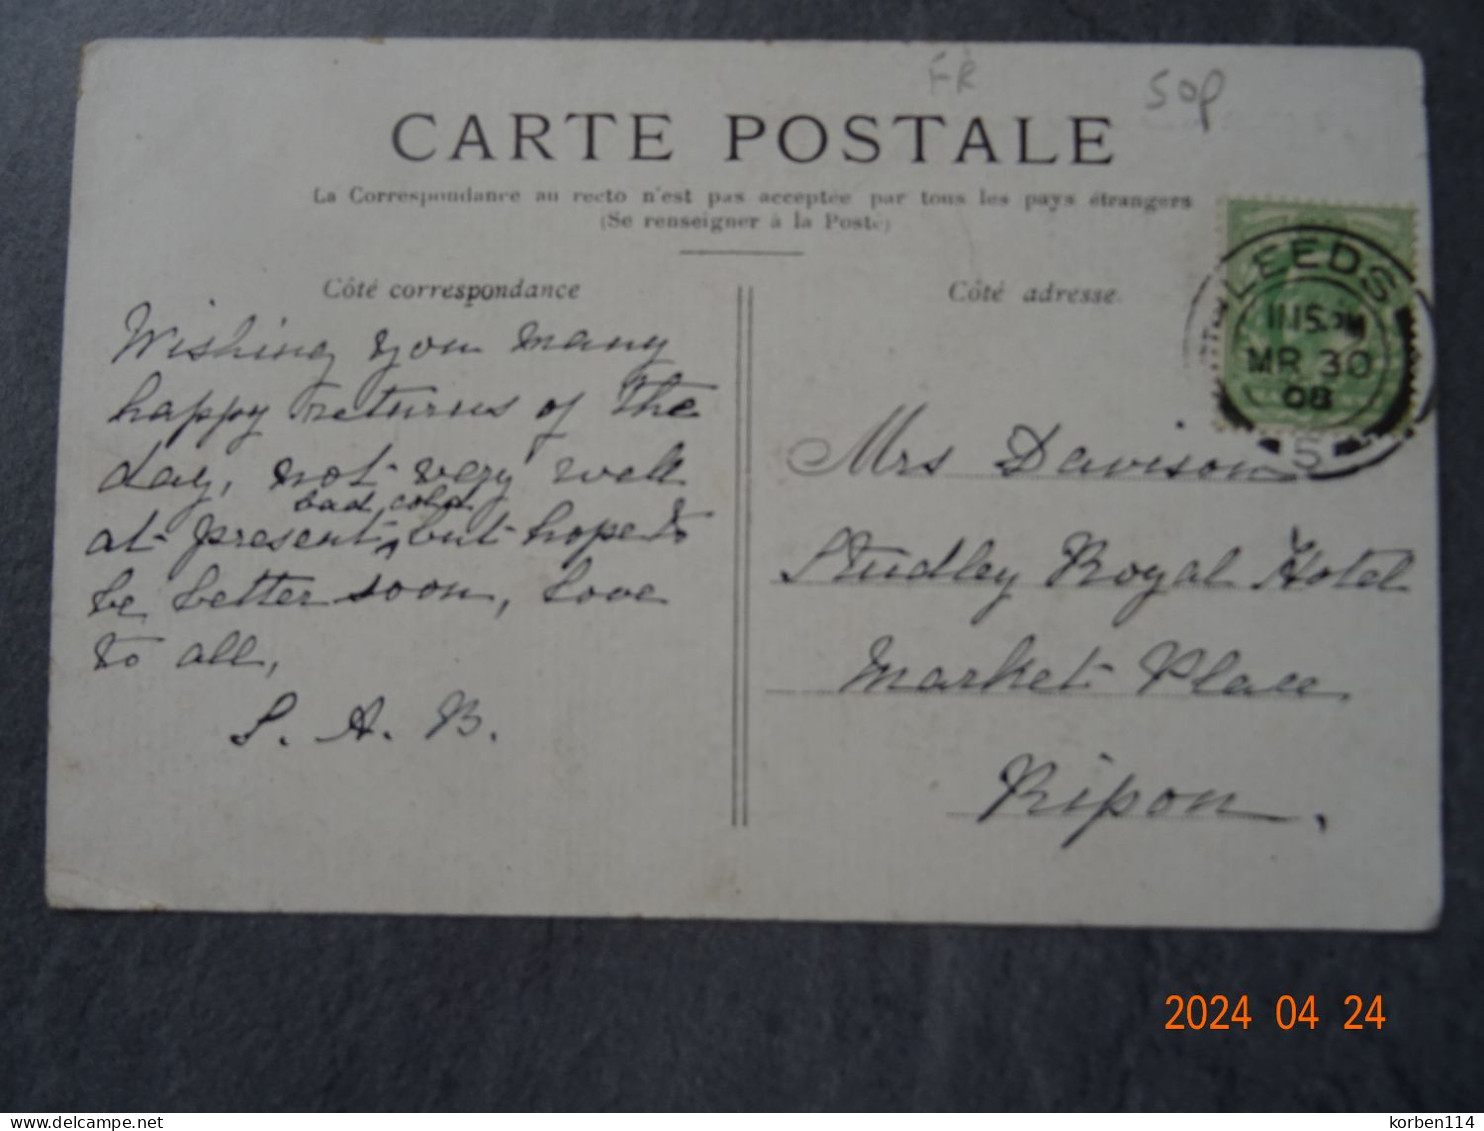 FR
50p
CARTE POSTALE
La Correspondance au recto n'est pas acceptée par tous les pays étrangers
(Se renseigner à la Poste)
Côté correspondance
Wishing you many
happy returns of the
day, not very well
bad cold
at present, but hope to
be better soon, love
to all,
S. A. B.
Côté adresse
LEEDS
11.15 PM
MR 30
08
5
Mrs Davison
Studley Royal Hotel
Market Place
Ripon.
2024 04 24
delcampe.net
korben114